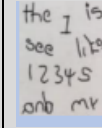 the I is
see lite
12345
onb mr